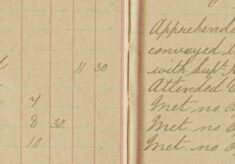 11 30
4
8 30.
10.
Apprehende
conveyed t
with Supt.
Attended C
Met no O
Met no O
Met no